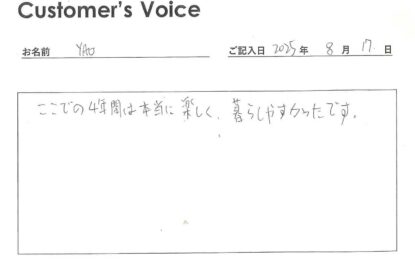 Customer's Voice
お名前 YAO ご記入日 2025年 8月 17日
ここでの4年間は本当に楽しく、暮らしやすかったです。